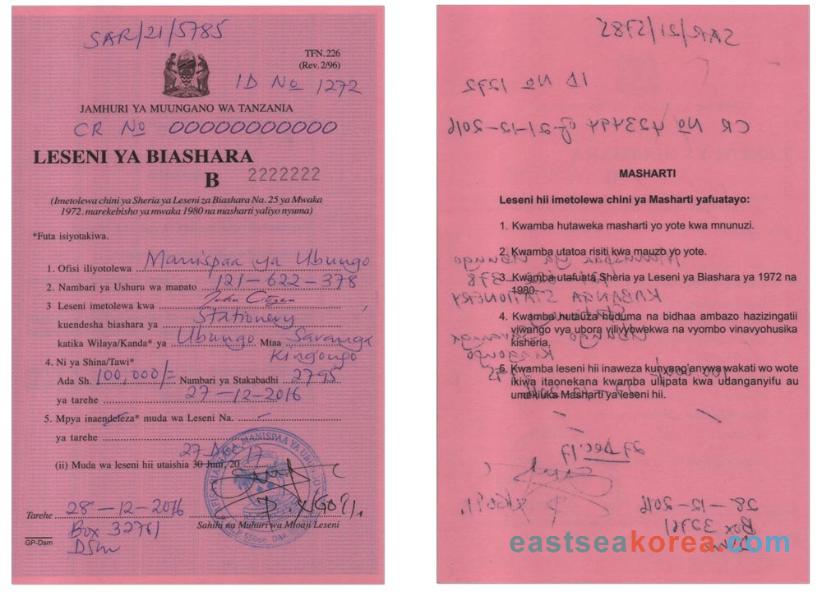 SAR/21/5785
TFN. 226
(Rev. 2/96)
ID No 1272
JAMHURI YA MUUNGANO WA TANZANIA
CR No 00000000000
LESENI YA BIASHARA
B 2222222
(Imetolewa chini ya Sheria ya Leseni za Biashara Na. 25 ya Mwaka
1972. marekebisho ya mwaka 1980 na masharti yaliyo nyuma)
*Futa isiyotakiwa.
1. Ofisi iliyotolewa Manispaa ya Ubungo
2. Nambari ya Ushuru wa mapato 121-622-378
3 Leseni imetolewa kwa John Citizen
kuendesha biashara ya Stationery
katika Wilaya/Kanda* ya Ubungo Mtaa Saranga
Kingongo
4. Ni ya Shina/Tawi*
Ada Sh. 100,000/= Nambari ya Stakabadhi 2795
ya tarehe 27-12-2016
5. Mpya inaendeleza* muda wa Leseni Na.
ya tarehe
27 Dec 17
(ii) Muda wa leseni hii utaishia 30 Juni, 20
MANISPAA YA UBUNGO
Tarehe 28-12-2016
Sahihi na Muhuri wa Mtoaji Leseni
Box 32761
Dsm
GP-Dsm
SAR/21/5785
ID No 1272
CR No 423494 of 21-12-2016
MASHARTI
Leseni hii imetolewa chini ya Masharti yafuatayo:
1. Kwamba hutaweka masharti yo yote kwa mnunuzi.
2. Kwamba utatoa risiti kwa mauzo yo yote.
3. Kwamba utafuata Sheria ya Leseni ya Biashara ya 1972 na
1980.
4. Kwamba hutauza huduma na bidhaa ambazo hazizingatii
viwango vya ubora vilivyowekwa na vyombo vinavyohusika
kisheria.
5. Kwamba leseni hii inaweza kunyang'anywa wakati wo wote
ikiwa itaonekana kwamba ulipata kwa udanganyifu au
umekiuka Masharti ya leseni hii.
KABANGA STATIONERY
27 Dec 17
28-12-2016
Box 32761
Dsm
eastseakorea.com